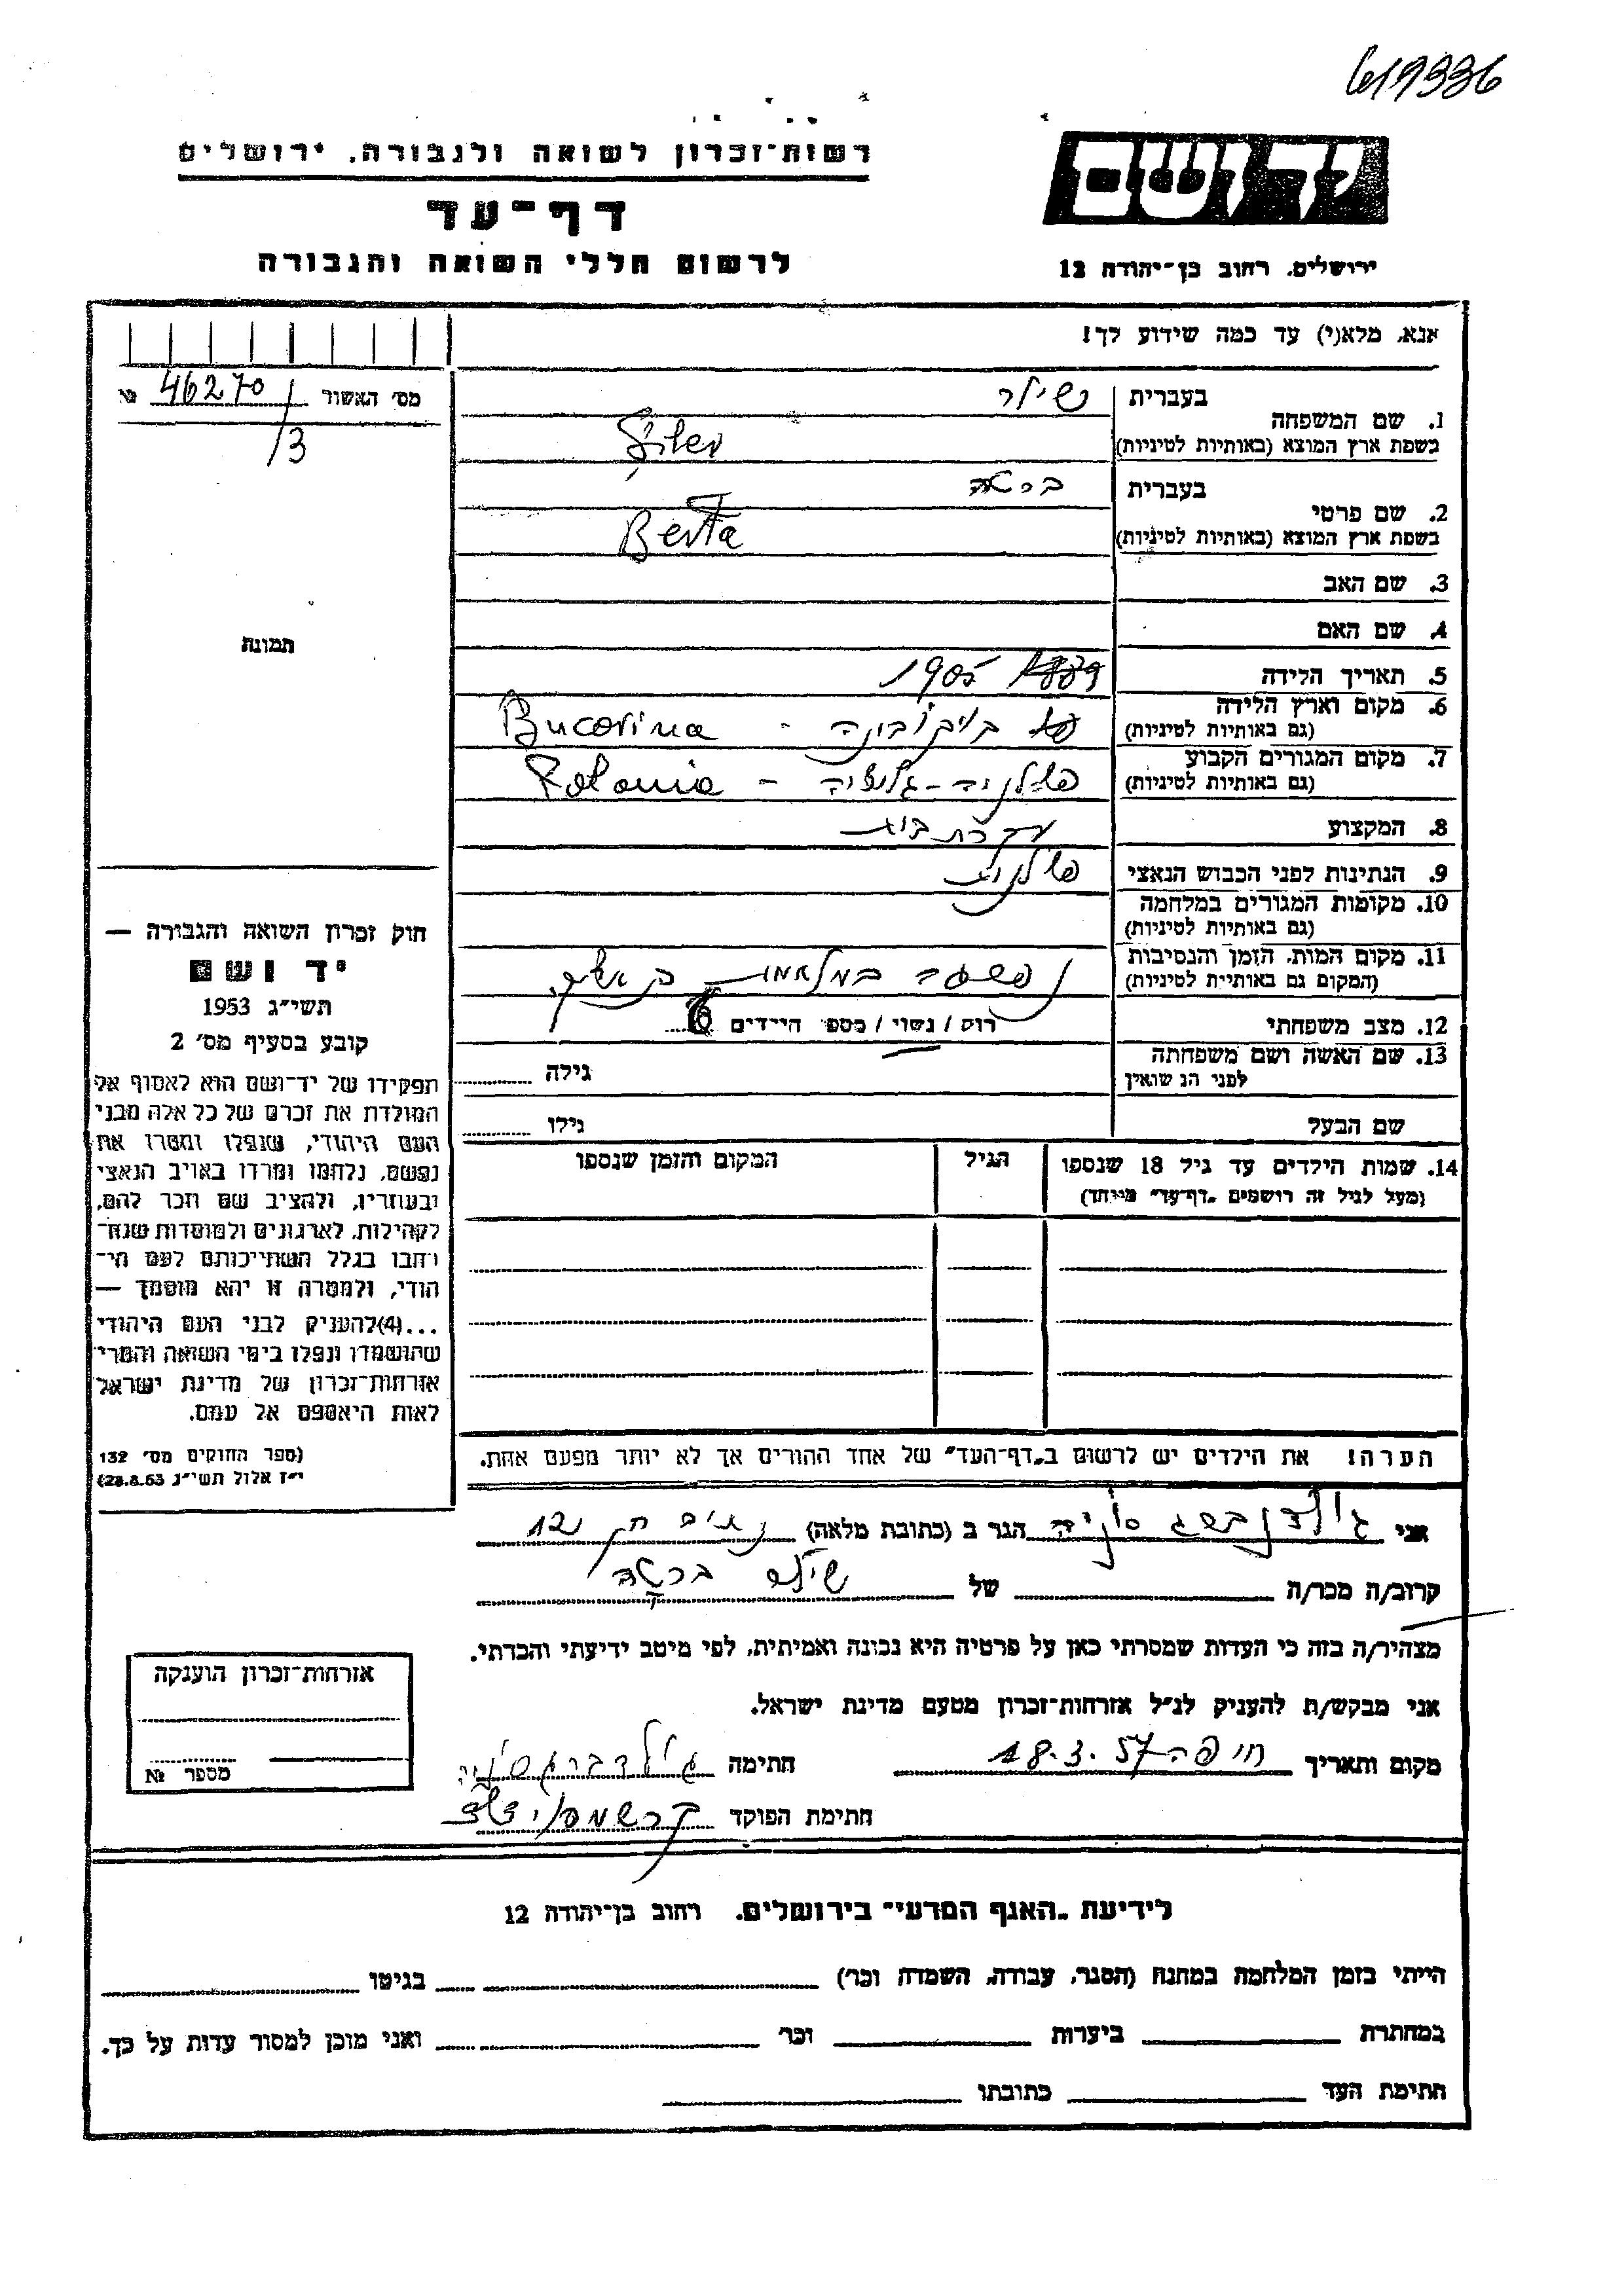 617336
רשות־זכרון לשואה ולגבורה. ירושלים
דף־עד
לרשום חללי השואה והגבורה
יד ושם
ירושלים. רחוב בן־יהודה 12
אנא, מלא(י) עד כמה שידוע לך!
מס׳ האשור 46270 №
/3
1. שם המשפחה
בעברית שילר
בשפת ארץ המוצא (באותיות לטיניות) Šiler
2. שם פרטי
בעברית ברטה
בשפת ארץ המוצא (באותיות לטיניות) Berta
3. שם האב
4. שם האם
תמונה
5. תאריך הלידה 1905
6. מקום וארץ הלידה בוקובינה - Bucovina
(גם באותיות לטיניות)
7. מקום המגורים הקבוע פולניה - גליציה - Polonia
(גם באותיות לטיניות)
8. המקצוע עקרת בית
9. הנתינות לפני הכבוש הנאצי פולנית
10. מקומות המגורים במלחמה
(גם באותיות לטיניות)
11. מקום המות, הזמן והנסיבות
(המקום גם באותיות לטיניות)
12. מצב משפחתי רוק / נשוי / מספר הילדים
13. שם האשה ושם משפחתה
לפני הנשואין גילה
שם הבעל גילו
14. שמות הילדים עד גיל 18 שנספו הגיל המקום והזמן שנספו
(מעל לגיל זה רושמים „דף־עד״ מיוחד)
הערה! את הילדים יש לרשום ב„דף־העד״ של אחד ההורים אך לא יותר מפעם אחת.
חוק זכרון השואה והגבורה —
יד ושם
תשי״ג 1953
קובע בסעיף מס׳ 2
תפקידו של יד־ושם הוא לאסוף אל
המולדת את זכרם של כל אלה מבני
העם היהודי, שנפלו ומסרו את
נפשם, נלחמו ומרדו באויב הנאצי
ובעוזריו, ולהציב שם וזכר להם,
לקהילות, לארגונים ולמוסדות שנח־
רבו בגלל השתייכותם לעם הי־
הודי, ולמטרה זו יהא מוסמך —
...(4)להעניק לבני העם היהודי
שהושמדו ונפלו בימי השואה והמרי
אזרחות־זכרון של מדינת ישראל
לאות היאספם אל עמם.
(ספר החוקים מס׳ 132
י״ז אלול תשי״ג 28.8.53)
אני גולדנברג סוניה הגר ב (כתובת מלאה) 12
קרוב/ה מכר/ה של שילר ברטה
מצהיר/ה בזה כי העדות שמסרתי כאן על פרטיה היא נכונה ואמיתית, לפי מיטב ידיעתי והכרתי.
אני מבקש/ת להעניק לנ״ל אזרחות־זכרון מטעם מדינת ישראל.
מקום ותאריך חיפה 18.3.57 חתימה
חתימת הפוקד
אזרחות־זכרון הוענקה
מספר №
לידיעת „האגף המדעי״ בירושלים. רחוב בן־יהודה 12
הייתי בזמן המלחמה במחנה (הסגר, עבודה, השמדה וכר׳) בגיטו
במחתרת ביערות וכר׳ ואני מוכן למסור עדות על כך.
חתימת העד כתובתו